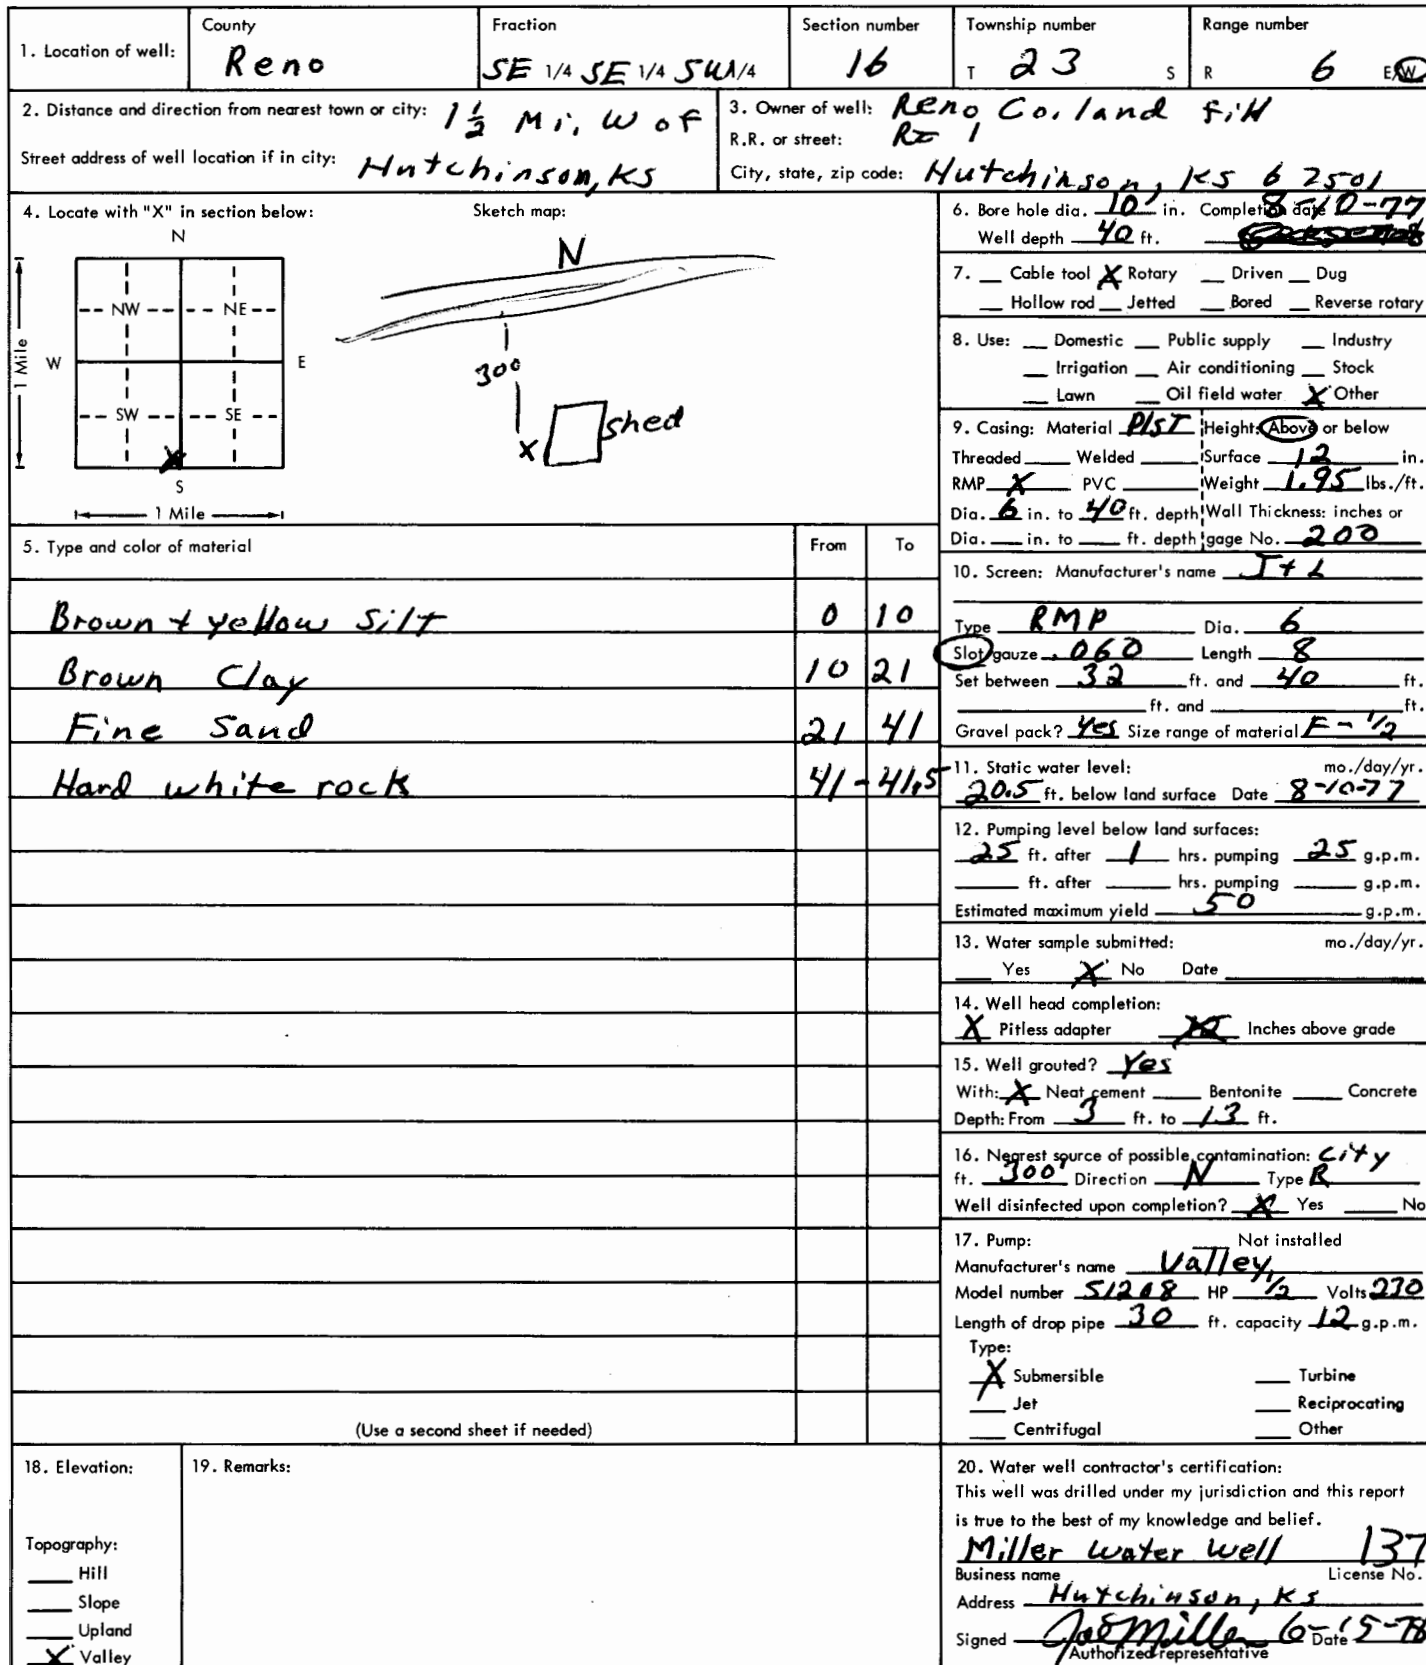 1. Location of well:
County
Reno
Fraction
SE 1/4 SE 1/4 SW 1/4
Section number
16
Township number
T 23 S
Range number
R 6 E/W
2. Distance and direction from nearest town or city: 1 1/2 Mi. W of
Street address of well location if in city: Hutchinson, KS
3. Owner of well: Reno Co. land fill
R.R. or street: Rt 1
City, state, zip code: Hutchinson, KS 62501
4. Locate with "X" in section below:
Sketch map:
N
N
NW NE
1 Mile
W
E
300
SW SE
shed
X
X
S
1 Mile
5. Type and color of material From To
Brown + yellow silt 0 10
Brown Clay 10 21
Fine Sand 21 41
Hard white rock 41 - 41.5
(Use a second sheet if needed)
6. Bore hole dia. 10 in. Completion date 8-10-77
Well depth 40 ft.
7. Cable tool X Rotary Driven Dug
Hollow rod Jetted Bored Reverse rotary
8. Use: Domestic Public supply Industry
Irrigation Air conditioning Stock
Lawn Oil field water X Other
9. Casing: Material PlST Height: Above or below
Threaded Welded Surface 12 in.
RMP X PVC Weight 1.95 lbs./ft.
Dia. 6 in. to 40 ft. depth Wall Thickness: inches or
Dia. in. to ft. depth gage No. 200
10. Screen: Manufacturer's name J + L
Type RMP Dia. 6
Slot/gauze .060 Length 8
Set between 32 ft. and 40 ft.
ft. and ft.
Gravel pack? Yes Size range of material F - 1/2
11. Static water level: mo./day/yr.
20.5 ft. below land surface Date 8-10-77
12. Pumping level below land surfaces:
25 ft. after 1 hrs. pumping 25 g.p.m.
ft. after hrs. pumping g.p.m.
Estimated maximum yield 50 g.p.m.
13. Water sample submitted: mo./day/yr.
Yes X No Date
14. Well head completion:
X Pitless adapter Inches above grade
15. Well grouted? Yes
With: X Neat cement Bentonite Concrete
Depth: From 3 ft. to 13 ft.
16. Nearest source of possible contamination: City
ft. 300' Direction N Type R
Well disinfected upon completion? X Yes No
17. Pump: Not installed
Manufacturer's name Valley
Model number S1208 HP 1/2 Volts 230
Length of drop pipe 30 ft. capacity 12 g.p.m.
Type:
X Submersible Turbine
Jet Reciprocating
Centrifugal Other
18. Elevation:
Topography:
Hill
Slope
Upland
X Valley
19. Remarks:
20. Water well contractor's certification:
This well was drilled under my jurisdiction and this report
is true to the best of my knowledge and belief.
Miller Water Well 137
Business name License No.
Address Hutchinson, KS
Signed Joe Miller Date 6-15-78
Authorized representative